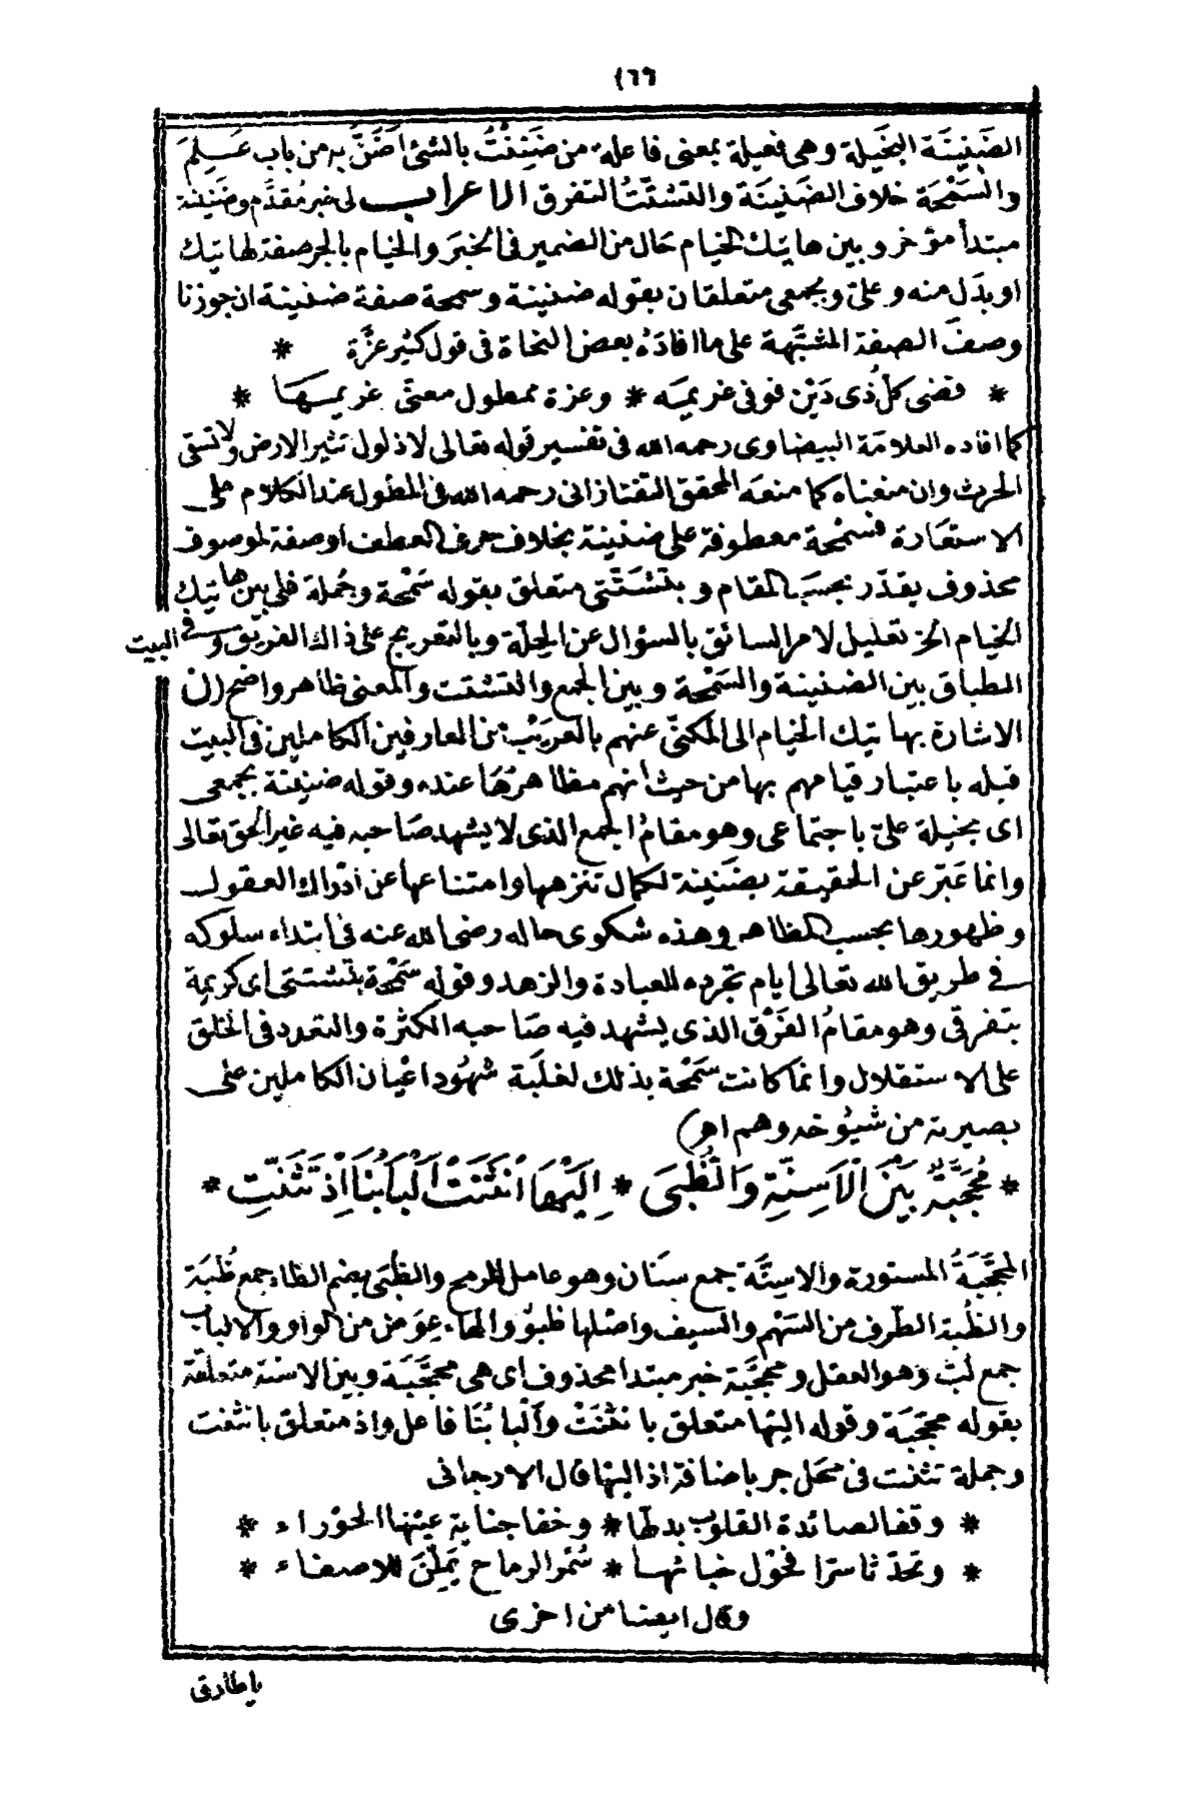 ١٦٦
الضَنِينَة البَخَيلة وهى فعيلة بمعنى فاعله من ضَنِنْتُ بالشئ اَضَنَّ به من باب عَلِمَ
والسَمْحَة خلاف الضَنِينَة والتشتّتُ التفرق الاعراب لى خبر مُقدَّم وضَنِينة
مبتدأ مؤخر وبين هاتيك الخيام حَال من الضمير فى الخبَر والخيام بالجر صفة لهاتيك
او بدَل منه وعلىّ وبجمعى متعلقان بقوله ضنينة وسمحة صفة ضنينة ان جوزنا
وصفَ الصفة المشبَّهة على ما افادَهُ بعض النحاة فى قول كثير عزَّة *
* قضى كلّ ذى دَيْن فوفى غريمَه * وعزة ممطول معنّى غريمهَا *
كما افاده العلامَة البيضاوى رحمه الله فى تفسير قوله تعالى لاذلول تثير الارض ولا تسقى
الحرث وان منعناه كما منعَه المحقق التفتازانى رحمه الله فى المطول عند الكلام على
الاستعَارة فسَمْحَة معطوفة على ضنينة بخلاف حرف العطف او صفة لموصوف
محذوف يقدّر بحسَب المقام وبتشتَّتى متعلق بقوله سَمْحة وجُملة فلى بين هاتيك
الخيام الخ تعليل لامر السائق بالسؤال عن الحِلّة وبالتعريج على ذاك الفريق وفى البيت
الطباق بين الضنينة والسَمْحة وبين الجمع والتشتت والمعنى ظاهر واضح (لان
الاشارة بهاتيك الخيام الى المكنىّ عنهم بالعرَيْب من العارفين الكاملين فى البيت
قبله باعتبار قيامهم بها من حيث انهم مظاهرهَا عنده وقوله ضنينة بجمعى
اى بخيلة علىّ باجتماعى وهو مقامُ الجمع الذى لا يشهد صَاحبه فيه غير الحق تعالى
وانما عَبّر عن الحقيقة بضنينة لكمال تنزهها وامتناعها عن ادْراك العقول
وظهورها بحسب المظاهر وهذه شكوى حاله رضى الله عنه فى ابتداء سلوكه
فى طريق الله تعالى ايام تجرده للعبادة والزهد وقوله سَمْحَة بتشتتى اى كريمة
بتفرقى وهو مقامُ الفَرْق الذى يشهد فيه صَاحبه الكثرة والتعدد فى الخلق
على الاستقلال وانما كانت سَمْحة بذلك لغلَبة شهُود اعْيان الكاملين على
بصيرته من شيُوخه وهم اهـ)
* مُحَجَّبَةٌ بَيْنَ الْاَسِنَّةِ وَالظُّبَى * اِلَيْهَا انْثَنَتْ اَلْبَابُنَا اِذْ تَثَنَّتِ *
المحجَّبَةُ المستورة والاسنَّة جمع سنَان وهو عامل الرمح والظُبَى بضم الظاء جمع ظُبَة
والظُبة الطَرف من السَهْم والسيف واصْلها ظَبوٌ والهاء عِوَض من الواو والالباب
جمع لُب وهو العقل ومحجَّبَة خبر مبتدا محذوف اى هى محجَّبَة وبين الاسنة متعلقة
بقوله محجّبَة وقوله اليْها متعلق بانثنَتْ وألْبابُنَا فاعل واذ متعلق بانثنت
وجملة تثنت فى محَل جر باضافة اذ اليها قال الارجانى
* وقفا لصائدة القلوب بدلّها * وخفا جناية عيْنها الحوْراء *
* وتحدّثا سرّا فحَوْل خبائها * سُمْر الرماح يَمِلْنَ للاصغاء *
وقال ايضا من اخرى
ياطارقى